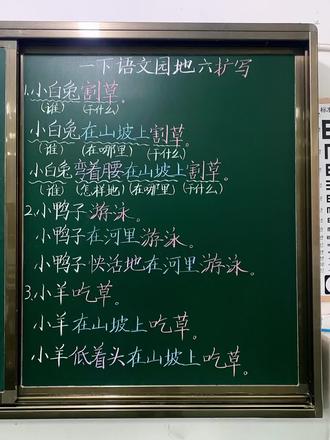 一下语文园地六扩写
1.小白兔割草。
(谁) (干什么)
小白兔在山坡上割草。
(谁) (在哪里) (干什么)
小白兔弯着腰在山坡上割草。
(谁) (怎样地) (在哪里) (干什么)
2.小鸭子游泳。
小鸭子在河里游泳。
小鸭子快活地在河里游泳。
3.小羊吃草。
小羊在山坡上吃草。
小羊低着头在山坡上吃草。